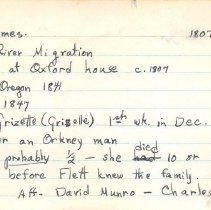 mes. 1807
River Migration
at Oxford house c. 1807
Oregon 1841
1847
Grizette (Grizelle) 1st wk. in Dec.
r an Orkney man
probably ½ – she died had 10 or
before Flett knew the family.
Aff. David Munro – Charles